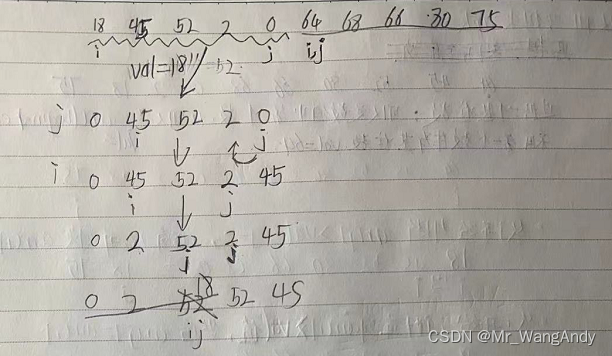 18 45 52 2 0 64 68 66 80 75
i j i,j
val=18 52
j 0 45 52 2 0
i j
i 0 45 52 2 45
i j
0 2 52 2 45
i j
0 2 18 52 45
ij
CSDN @Mr_WangAndy